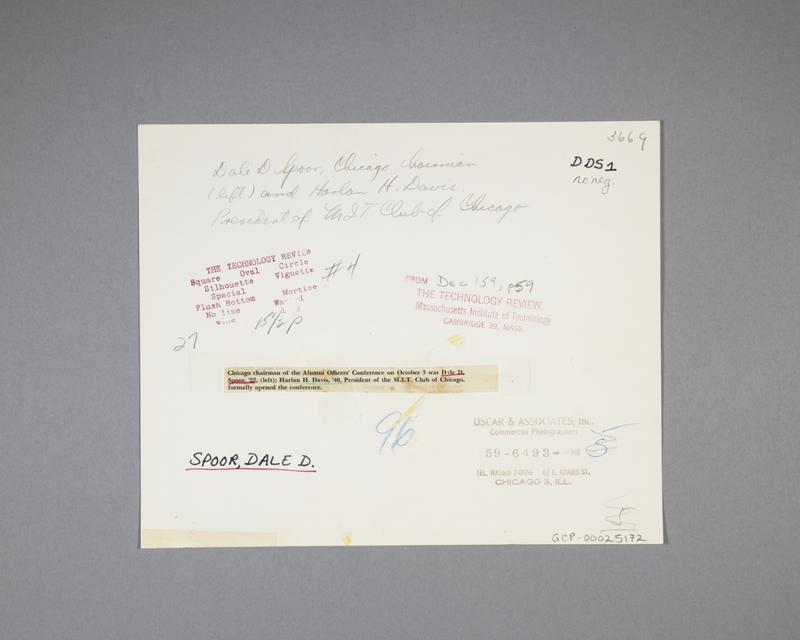 3669
Dale D. Spoor, Chicago chairman
(left) and Harlan H. Davis,
President of MIT Club of Chicago
DDS1
no neg.
THE TECHNOLOGY REVIEW
Square Oval Circle
Silhouette Vignette
Special Mortise
Flush Bottom
No line
#4
15 1/2 P
27
FROM Dec '59, p59
THE TECHNOLOGY REVIEW,
Massachusetts Institute of Technology
CAMBRIDGE 39, MASS.
Chicago chairman of the Alumni Officers' Conference on October 3 was Dyle D.
Spoor, '22, (left); Harlan H. Davis, '40, President of the M.I.T. Club of Chicago,
formally opened the conference.
96
SPOOR, DALE D.
OSCAR & ASSOCIATES, Inc.
Commercial Photographers
59-6493
TEL. WAbash 2-0056 63 E. ADAMS ST.
CHICAGO 3, ILL.
GCP-00025172